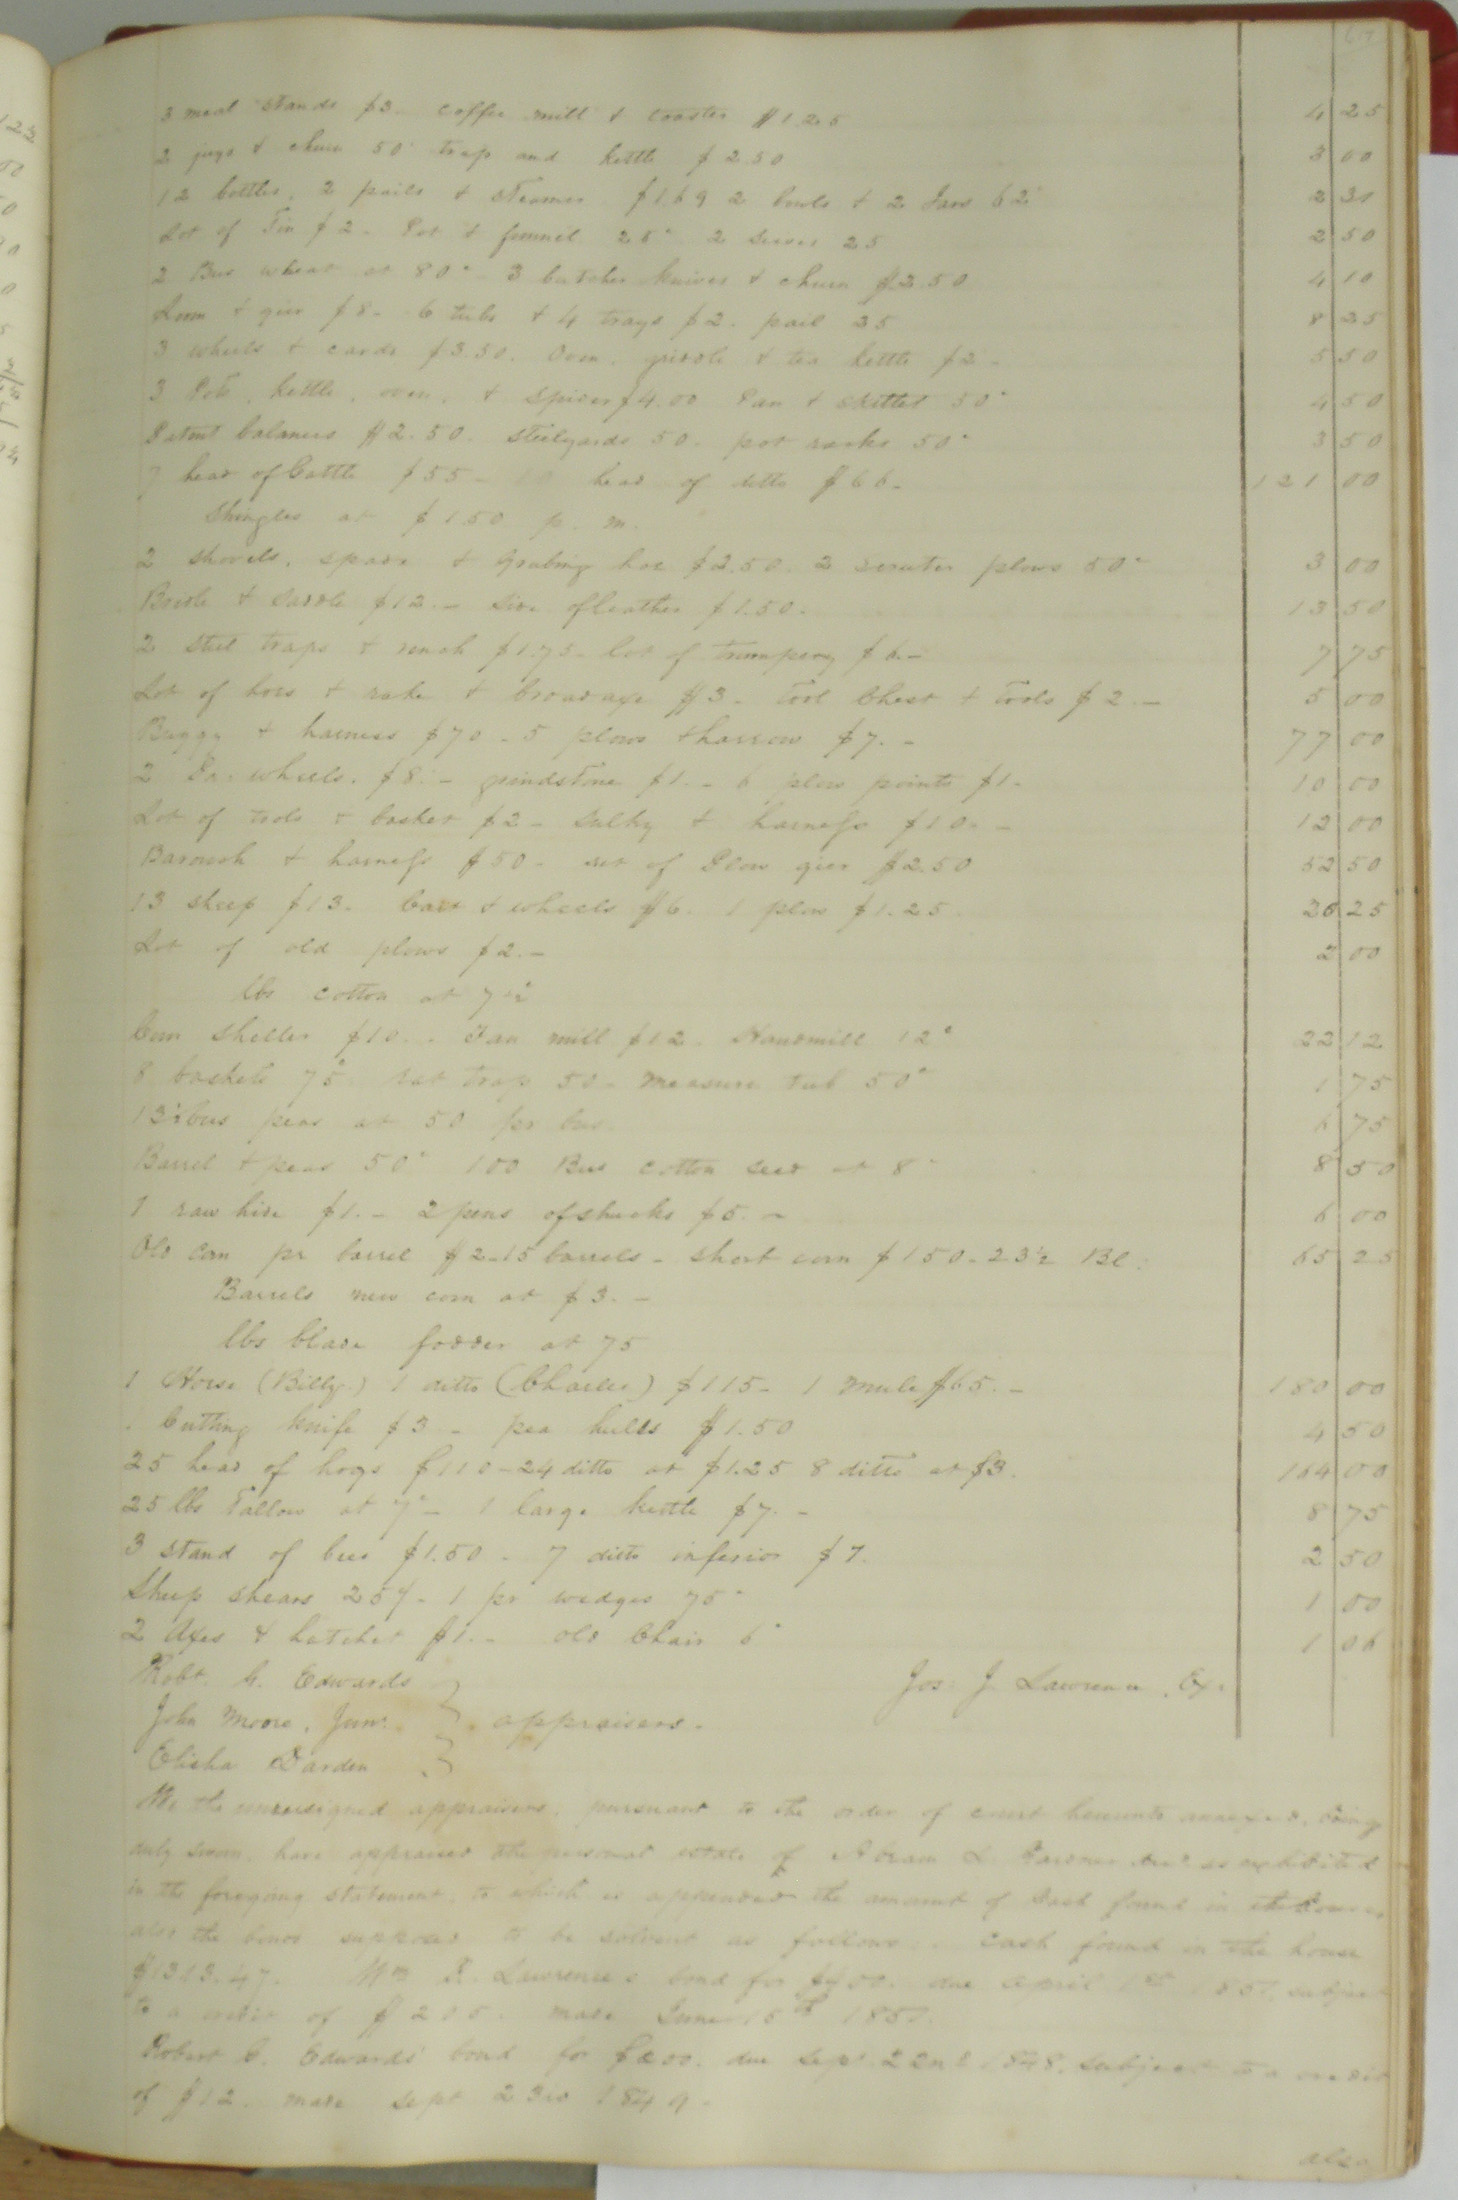 3 meal stands $3. coffee mill & toaster $1.25 4 25
2 jugs & churn 50c trap and kettle $2.50 3 00
12 bottles, 2 pails & steamer $1.69 2 bowls & 2 Jars 62c 2 31
Lot of Tin $2 - Pot & funnel 25c 2 sieves 25 2 50
2 Bus wheat at 80c - 3 butcher knives & churn $2.50 4 10
Loom & gier $8 - 6 tubs & 4 trays $2. pail 25 8 25
3 wheels & cards $3.50. Oven, griddle & tea kettle $2 - 5 50
3 Pots, kettle, oven, & spider $4.00 Pan & skillet 50c 4 50
Patent balances $2.50. Steelyards 50. pot racks 50c 3 50
7 head of Cattle $55 - head of ditto $66 - 121 00
Shingles at $1.50 p. m.
2 shovels, spade & Grubing hoe $2.50. 2 scooter plows 50c 3 00
Bridle & saddle $12. - Side of leather $1.50 - 13 50
2 steel traps & $1.75 - lot of trumpery $6. - 7 75
Lot of hoes & rake & broadaxe $3 - Tool Chest & Tools $2. - 5 00
Buggy & harness $70 - 5 plows & harrow $7. - 77 00
2 Pr. wheels. $8. - grindstone $1. - 6 plow points $1 - 10 00
Lot of tools & basket $2 - Sulky & harness $10. - 12 00
Barouch & harness $50 - set of Plow gier $2.50 52 50
13 sheep $13. Cart & wheels $6. 1 plow $1.25 20 25
Lot of old plows $2. - 2 00
lbs cotton at 7½c
Corn Sheller $10. - Fan mill $12. Handmill 12c 22 12
8 baskets 75c rat trap 50 - measure tub 50c 1 75
13½ bus peas at 50 pr bus. 6 75
Barrel & peas 50c 100 Bus cotton seed at 8c 8 50
1 raw hide $1. - 2 pens of shucks $5. - 6 00
Old Corn pr barrel $2 - 15 barrels - short corn $1.50 - 23½ Bl: 65 25
Barrels new corn at $3. -
lbs blade fodder at 75
1 Horse (Billy) 1 ditto (Charles) $115 - 1 Mule $65. - 180 00
Cutting knife $3 - pea hulls $1.50 4 50
25 head of hogs $110 - 24 ditto at $1.25 8 ditto at $3. 164 00
25 lbs Tallow at 7c - 1 large kettle $7. - 8 75
3 stand of bees $1.50 - 7 ditto inferior $7. 2 50
Sheep shears 25c - 1 pr wedges 75c 1 00
2 Axes & hatchet $1. - old Chair 6c 1 06
Robt. G. Edwards
Jos: J. Lawrence, Exr
John Moore, Junr. appraisers.
Elisha Darden
We the undersigned appraisers, pursuant to the order of court hereunto annexed, being
duly sworn, have appraised the personal estate of Abram L. decd as exhibited
in the foregoing statement, to which is appended the amount of Cash found in the house
also the bonds supposed to be solvent as follows: Cash found in the house
$1313.47. Wm Lawrence's bond for $400. due April 1st 1851, subject
to a credit of $205. made June 15th 1851.
Robert G. Edwards' bond for $200. due Sept. 22nd 1848. Subject to a credit
of $12. made Sept 23rd 1849 -
also